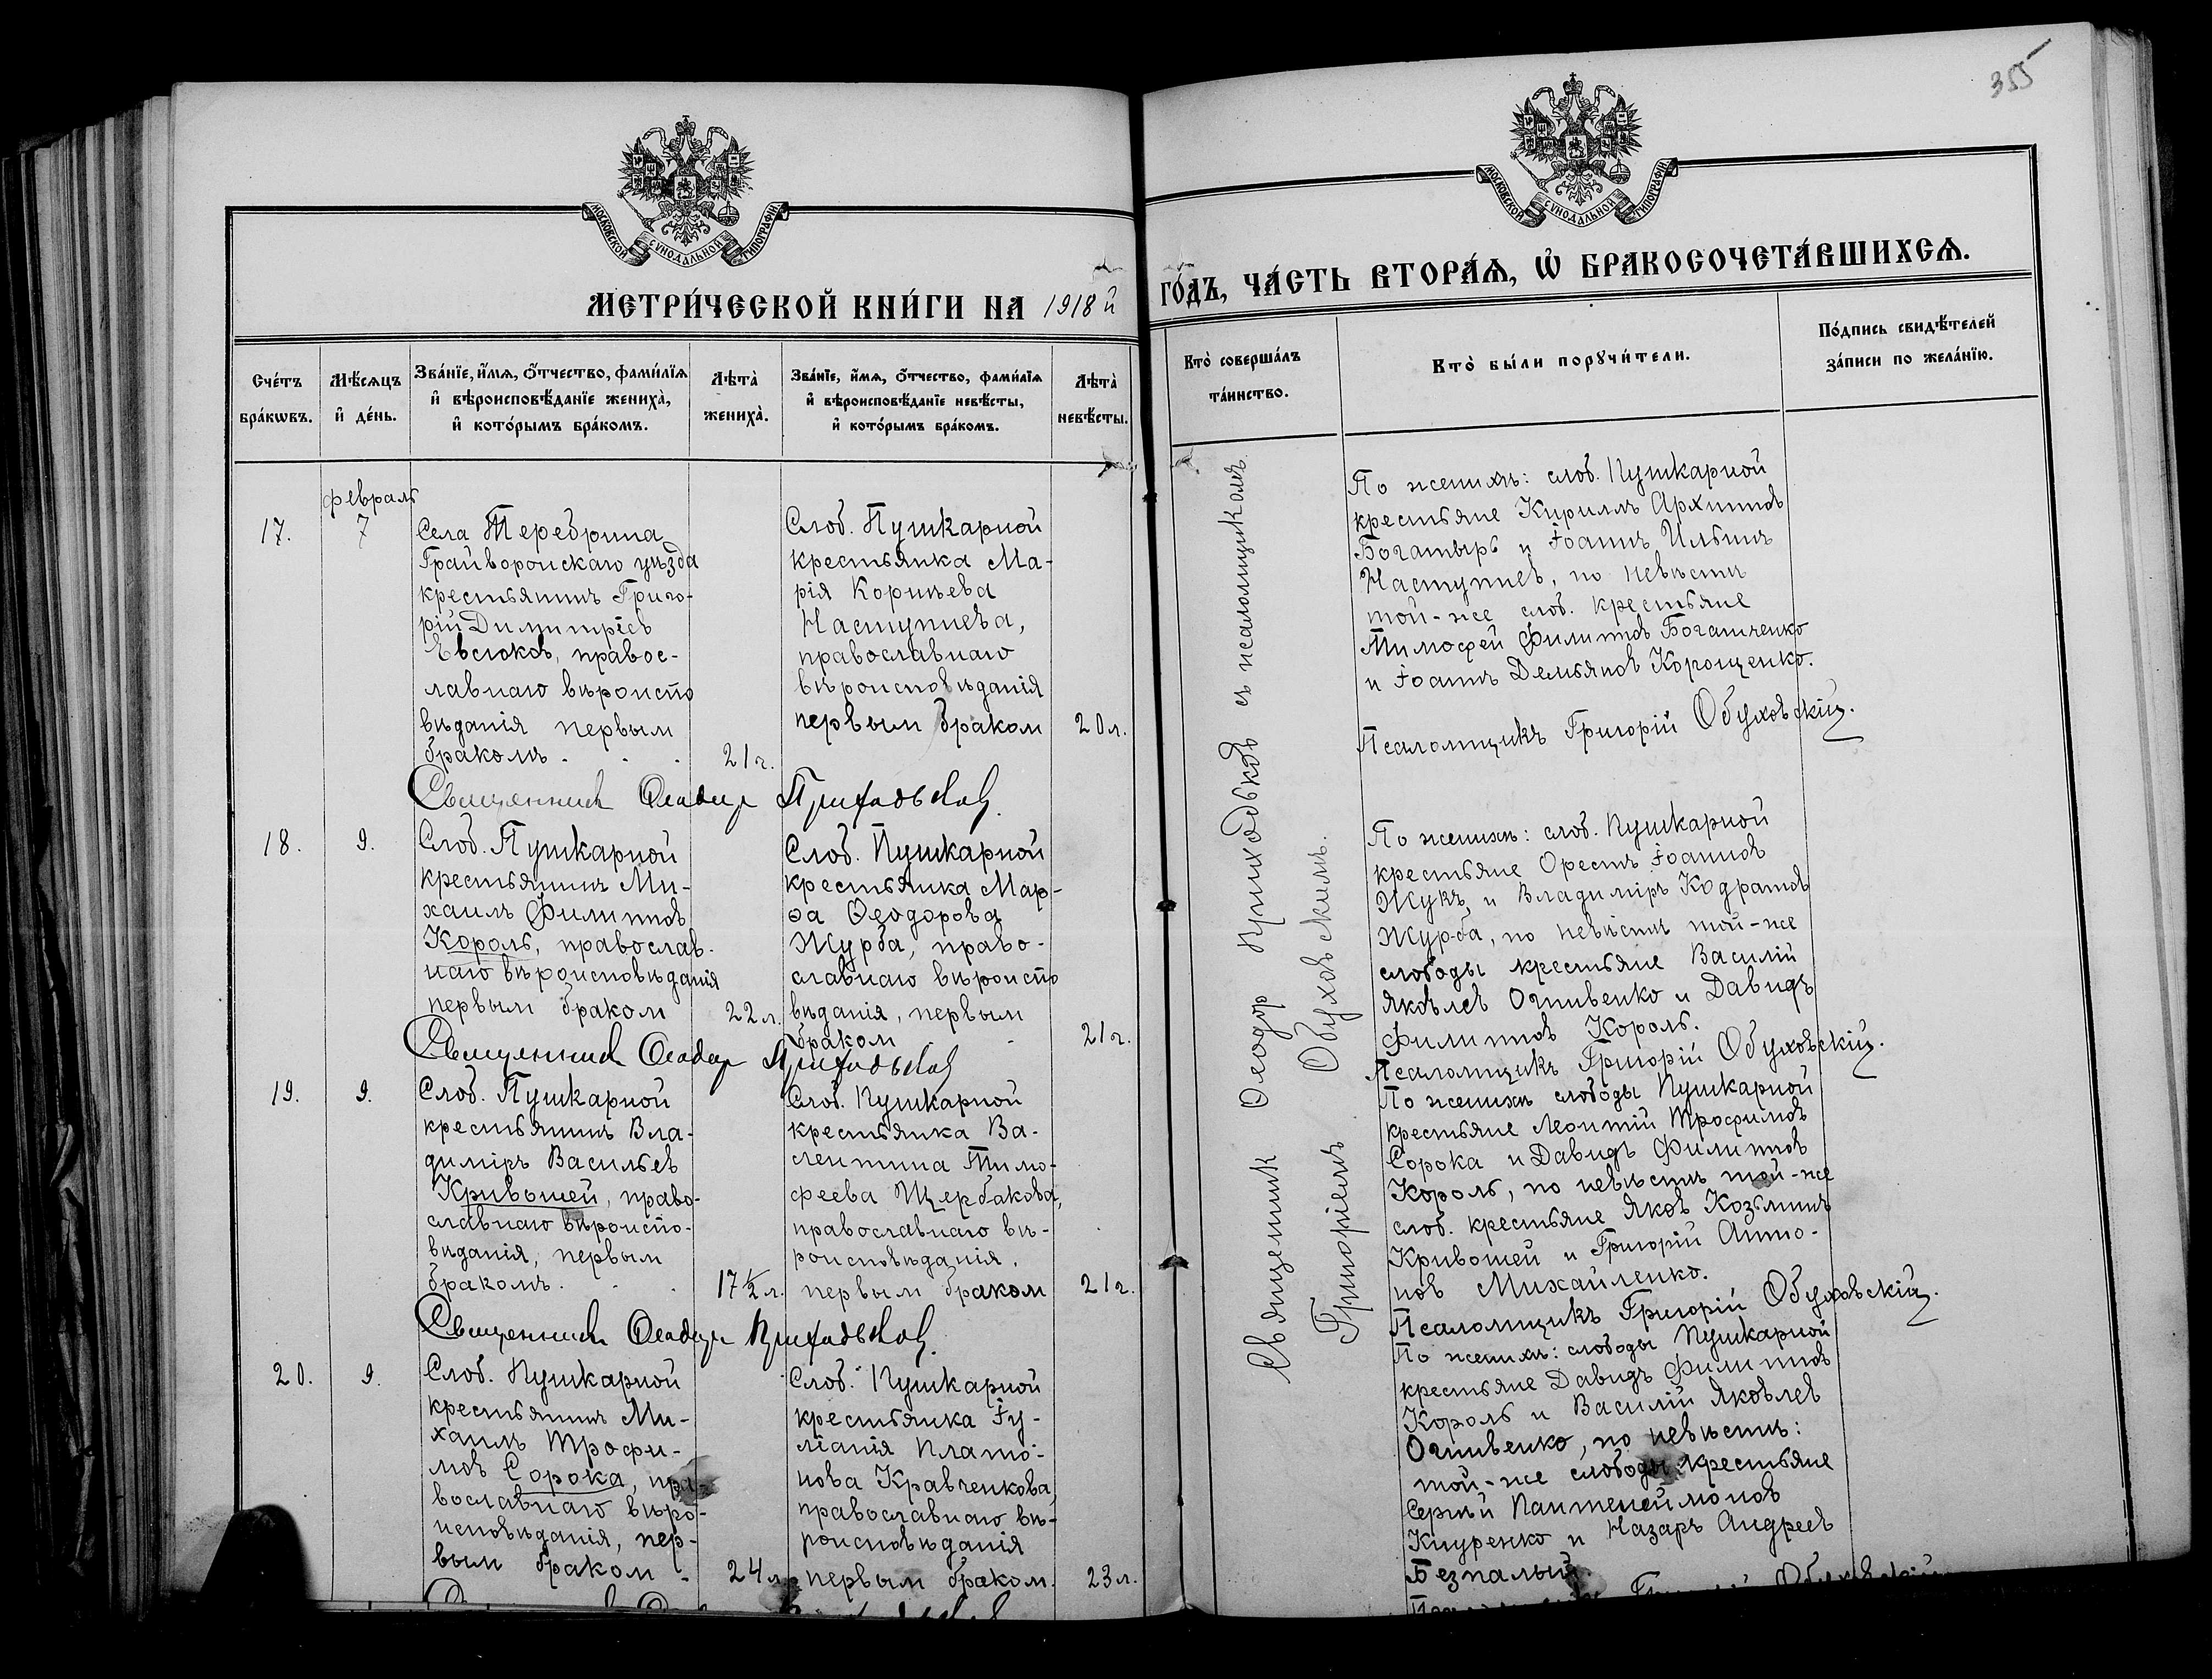 355
МОСКОВСКОЙ СѴНОДАЛЬНОЙ ТИПОГРАФІИ
МОСКОВСКОЙ СѴНОДАЛЬНОЙ ТИПОГРАФІИ
МЕТРИ́ЧЕСКОЙ КНИ́ГИ НА 1918й
ГО́ДЪ, ЧА́СТЬ ВТОРА́Ѧ, Ѽ БРАКОСОЧЕТА́ВШИХСѦ.
Сче́тъ
бра́кѡвъ.
Мѣ́сѧцъ
и҆ де́нь.
Зва́нїе, и҆́мѧ, ѻ҆́тчество, фами́лїѧ
и҆ вѣроисповѣ́данїе жениха̀,
и҆ кото́рымъ бра́комъ.
Лѣта̀
жениха̀.
Зва́нїе, и҆́мѧ, ѻ҆́тчество, фами́лїѧ
и҆ вѣроисповѣ́данїе невѣ́сты,
и҆ кото́рымъ бра́комъ.
Лѣта̀
невѣ́сты.
Кто̀ соверша́лъ
та́инство.
Кто̀ бы́ли порꙋчи́тели.
По́дпись свидѣ́телей
за́писи по жела́нїю.
февраль
17.
7
Села Теребрина
Грайворонскаго уѣзда
крестьянинъ Григо-
рій Димитріев
Евсюков, правос-
лавнаго вѣроиспо
вѣданія первым
бракомъ.
21 г.
Слоб. Пушкарной
крестьянка Ма-
рія Корнѣева
Наступнева,
православнаго
вѣроисповѣданія
первым браком
20 л.
По женихѣ: слоб. Пушкарной
крестьяне Кириллъ Архиппов
Богатырь и Іоаннъ Ильинъ
Наступнев, по невѣстѣ
той-же слоб. крестьяне
Тимофей Филиппов Богатченко
и Іоаннъ Демьянов Корощенко.
Псаломщикъ Григорій Обуховскій.
Священник Ѳеодор Приходьков
18.
9.
Слоб. Пушкарной
крестьянинъ Ми-
хаилъ Филиппов
Король, православ-
наго вѣроисповѣданія
первым браком
22 л.
Слоб. Пушкарной
крестьянка Мар-
ѳа Ѳеодорова
Журба, право-
славнаго вѣроиспо
вѣданія, первым
браком
21 г.
По женихѣ: слоб. Пушкарной
крестьяне Орестъ Іоаннов
Жукъ, и Владиміръ Кодратов
Журба, по невѣстѣ той-же
слободы крестьяне Василій
Яковлев Огнивенко и Давидъ
Филиппов Король.
Псаломщикъ Григорій Обуховскій.
Священник Ѳеодор Приходьков
19.
9.
Слоб. Пушкарной
крестьянинъ Вла-
диміръ Васильев
Кривошей, право-
славнаго вѣроиспо-
вѣданія, первым
бракомъ.
17 ½ л.
Слоб. Пушкарной
крестьянка Ва-
лентина Тимо-
феева Щербакова,
православнаго вѣ-
роисповѣданія,
первым браком
21 г.
По женихѣ слободы Пушкарной
крестьяне Леонтій Трофимов
Сорока и Давидъ Филиппов
Король, по невѣстѣ той-же
слоб. крестьяне Яков Козьминъ
Кривошей и Григорій Анто-
нов Михайленко.
Псаломщикъ Григорій Обуховскій.
Священник Ѳеодор Приходьков
20.
9.
Слоб. Пушкарной
крестьянинъ Ми-
хаилъ Трофи-
мов Сорока, пра-
вославнаго вѣро-
исповѣданія, пер-
вым браком
24 л.
Слоб. Пушкарной
крестьянка Іу-
ліанія Плато-
нова Кравченкова,
православнаго вѣ-
роисповѣданія
первым браком.
23 л.
По женихѣ: слободы Пушкарной
крестьяне Давидъ Филиппов
Король и Василій Яковлев
Огнивенко, по невѣстѣ:
той-же слободы крестьяне
Сергій Пантелеймонов
Кнуренко и Назаръ Андреев
Безпалый.
Священник Ѳеодор Приходьков съ псаломщиком
Григоріемъ Обуховским.